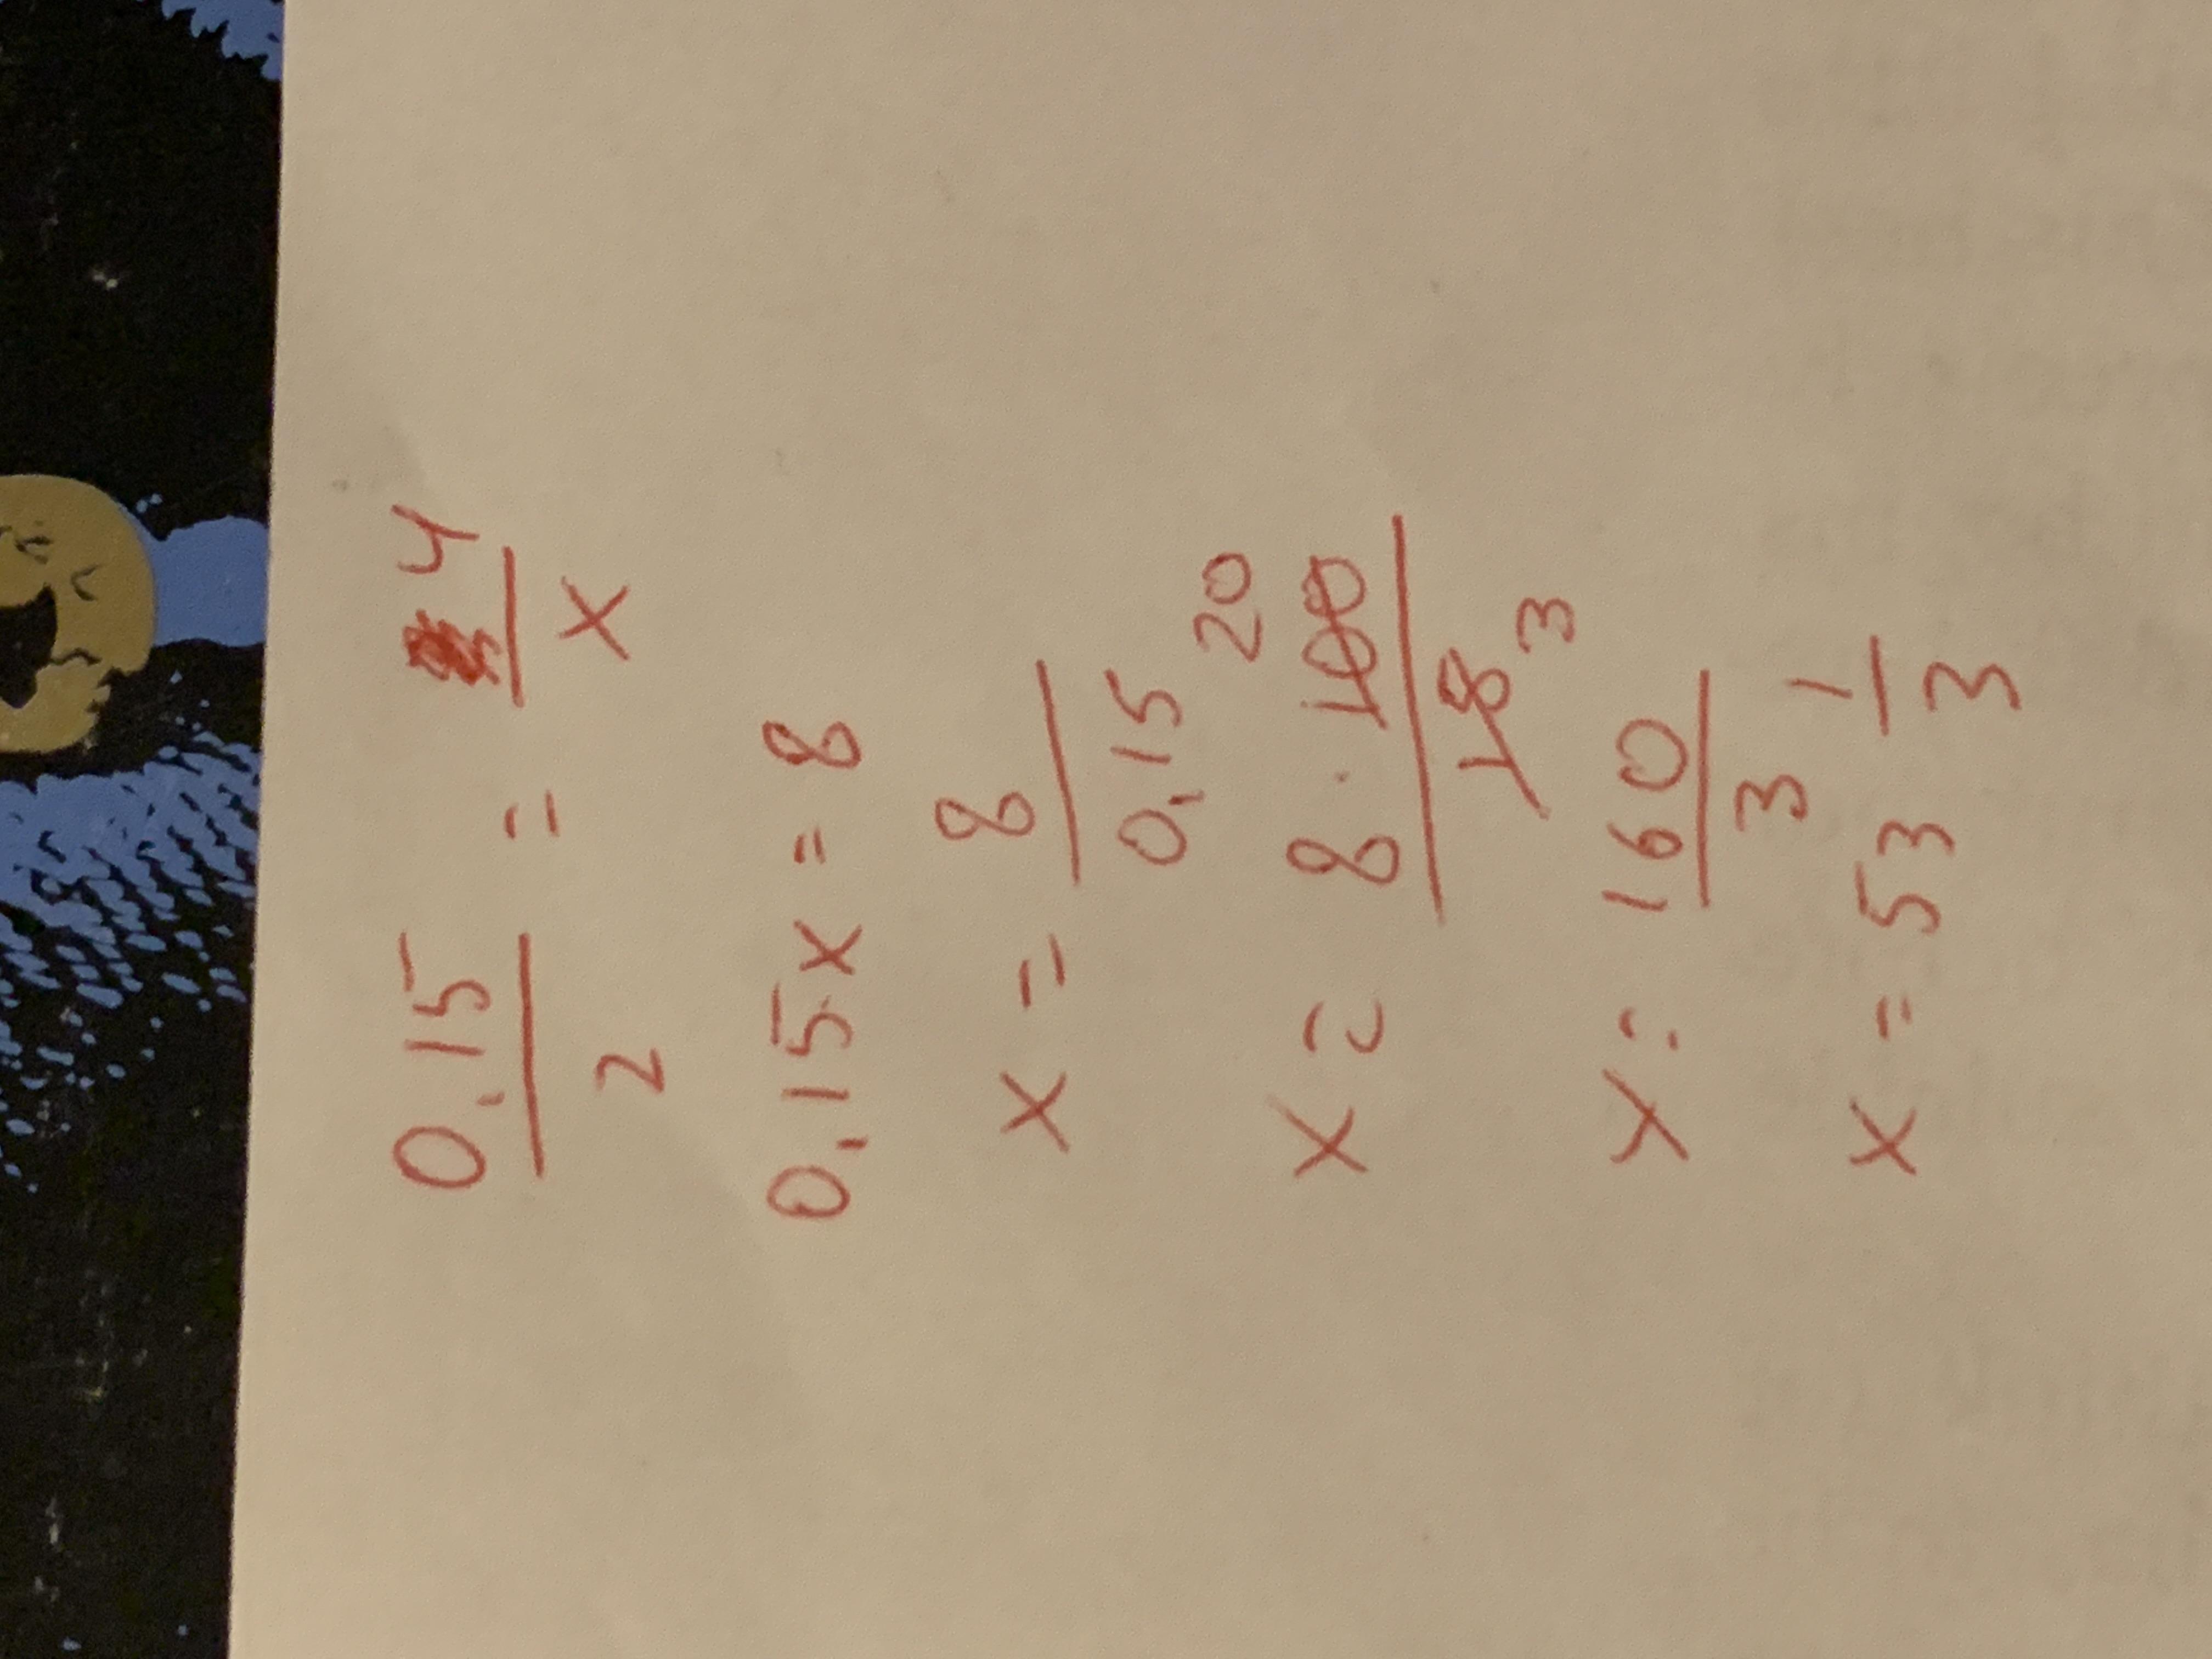 0,15/2 = 4/x
0,15x = 8
x = 8/0,15
x = 8·100/15 20 3
x = 160/3
x = 53 1/3